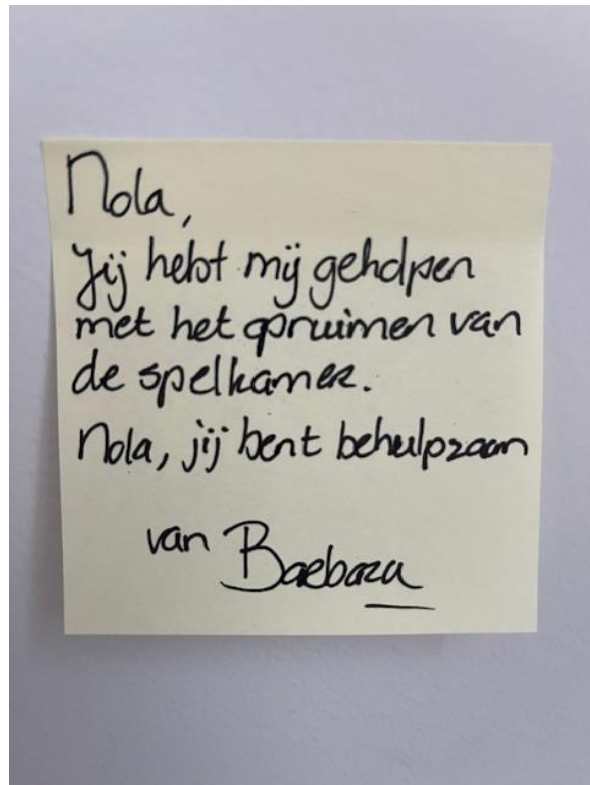 Nola,
Jij hebt mij geholpen
met het opruimen van
de spelkamer.
Nola, jij bent behulpzaam
van Barbara